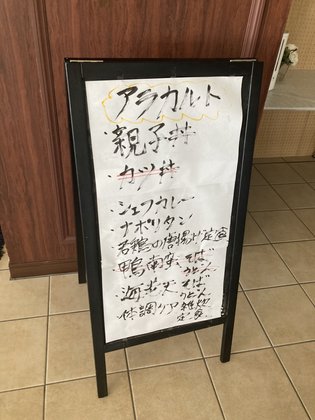 アラカルト
・親子丼
・カツ丼
・シェフカレー
・ナポリタン
・若鶏の唐揚げ定食
・鴨南蛮 そば
うどん
・海老天 そば
うどん
・体調ケア 雑炊